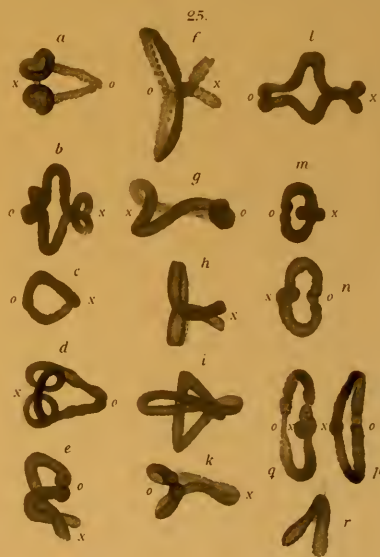 25.
a
x o
b
o x
c
o x
d
x o
e
o
x
f
o x
g
x o
h
x
i
k
o x
l
o x
m
o x
n
x o
q
o x
p
x o
r